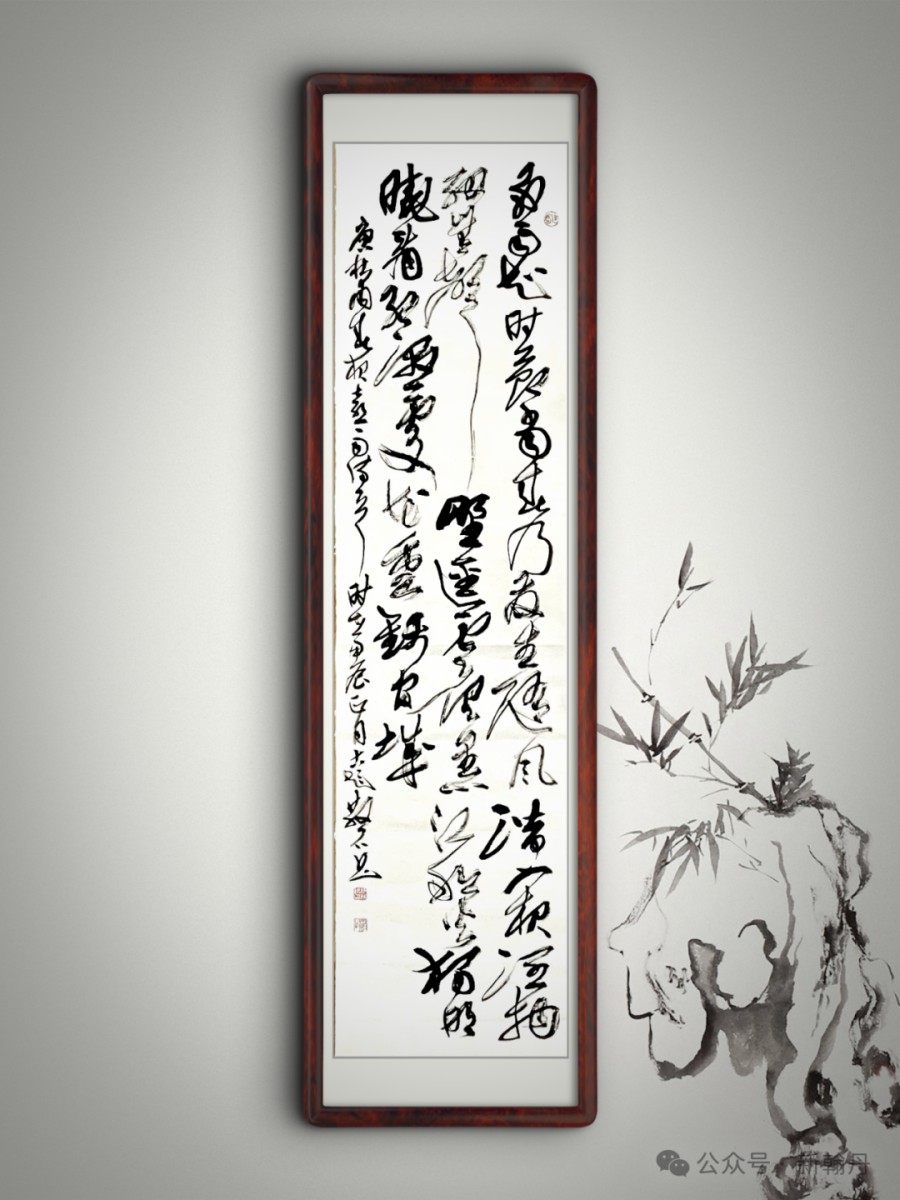 好雨知时节当春乃发生随风潜入夜润物
细无声野径云俱黑江船火独明
晓看红湿处花重锦官城
唐杜甫春夜喜雨诗 时在甲辰正月
公众号 · 新翰丹